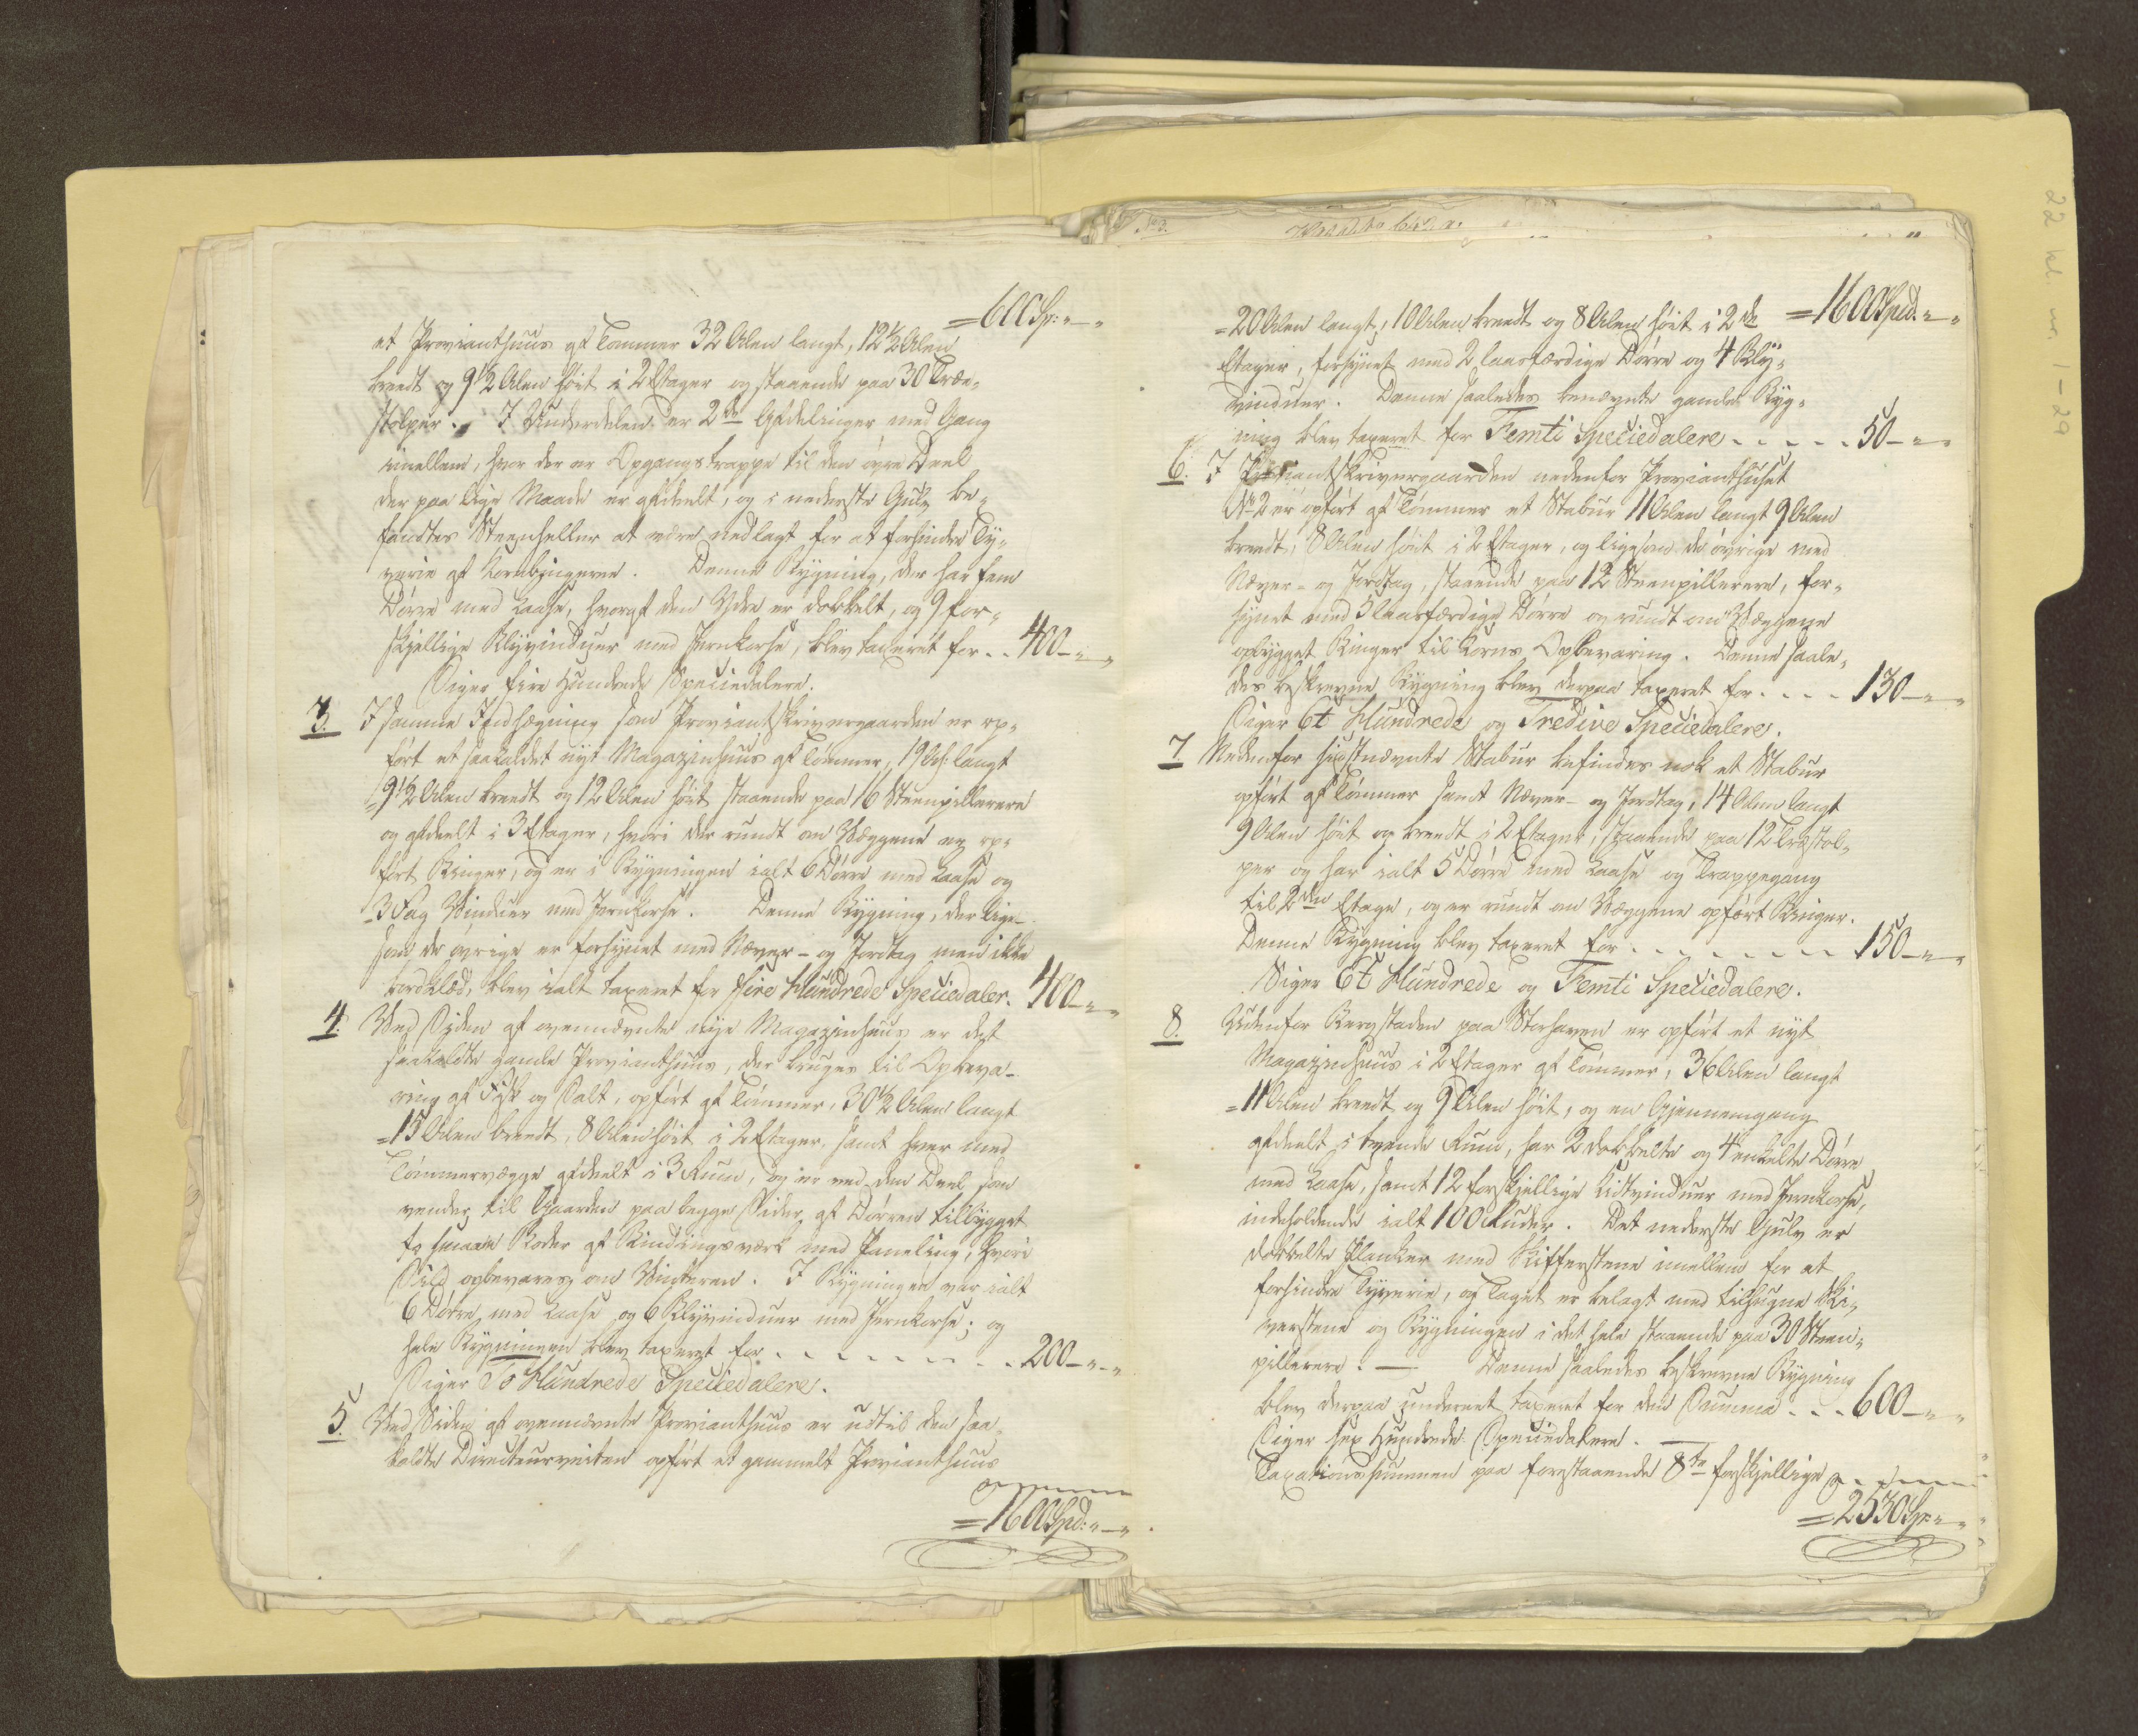 =600 Sp: „—„
et Provianthuus af Tømmer 32 Alen langt, 12½ Alen
bredt og 9½ Alen høit i 2 Etager og staaende paa 30 Træ-
stolper. I Underdelen er 2de Afdelinger med Gang
imellem, hvor der er Opgangstrappe til den øvre Deel
der paa lige Maade er afdeelt, og i nederste Gulv be-
fandtes Steenheller at være nedlagt for at forhindre Ty-
verie af Kornbingerne. Denne Bygning, der har fem
Dørre med Laase, hvoraf den Ydre er dobbelt, og 9 for-
skjellige Blyvinduer med Jernkorse, blev taxeret for .. 400-„-„
Siger fire Hundrede Speciedalere.
3. I samme Indhægning som Proviantskrivergaarden er op-
ført et saakaldet nyt Magazinhuus af Tømmer, 19 Al: langt
9½ Alen bredt og 12 Alen høit staaende paa 16 Steenpillerere
og afdeelt i 3 Etager, hvori der rundt om Væggene er op-
ført Binger, og er i Bygningen ialt 6 Dørre med Laase og
3 Fag Vinduer med Jernkorse. Denne Bygning, der lige-
som de øvrige er forsynet med Næver- og Jordtag men ikke
bordklæd, blev ialt taxeret for Fire Hundrede Speciedaler. 400-„-„
4. Ved Siden af ovennævnte nye Magazinhuus er det
saakaldte gamle Provianthuus, der bruges til Opbeva-
ring af Fisk og Salt, opført af Tømmer, 30½ Alen langt
=15 Alen bredt, 8 Alen høit i 2 Etager, samt hver med
Tømmervægge afdeelt i 3 Rum, og er ved den Deel som
vender til Gaarden paa begge Sider af Dørren tilbygget
to smaae Boder af Bindingsværk med Paneling, hvori
Sild opbevares om Vinteren. I Bygningen var ialt
6 Dørre med Laase og 6 Blyvinduer med Jernkorse; og
hele Bygningen blev taxeret for . . . . . . . . 200-„-„
Siger To Hundrede Speciedalere.
5. Ved Siden af ovennævnte Provianthuus er udtil den saa-
kaldte Directeurveiten opført et gammelt Provianthuus
=1600 Spd: „—„
=1600 Spd. „—„
=20 Alen langt, 10 Alen bredt og 8 Alen høit i 2de
Etager, forsynet med 2 laasfærdige Dørre og 4 Bly-
vinduer. Denne saaledes benævnte gamle Byg-
ning blev taxeret for Femti Speciedalere . . . . . 50-„-„
6. I Proviantskrivergaarden nedenfor Provianthuset
No 2 er opført af Tømmer et Stabur 11 Alen langt 9 Alen
bredt, 8 Alen høit i 2 Etager, og ligesom de øvrige med
Næver- og Jordtag, staaende paa 12 Steenpillerere, for-
synet med 3 laasfærdige Dørre og rundt om Væggene
opbygget Binger til Korns Opbevaring. Denne saale-
des beskrevne Bygning blev derpaa taxeret for . . . . 130-„-„
Siger Et Hundrede og Tredive Speciedalere.
7. Nedenfor sidstnævnte Stabur befindes nok et Stabur
opført af Tømmer samt Næver- og Jordtag, 14 Alen langt
9 Alen høit og bredt i 2 Etager, staaende paa 12 Træstol-
per og har ialt 5 Dørre med Laase og Trappegang
til 2den Etage, og er rundt om Væggene opført Binger.
Denne Bygning blev taxeret for . . . . . . . . 150-„-„
Siger Et Hundrede og Femti Speciedalere.
8. Udenfor Bergstaden paa Storhaven er opført et nyt
Magazinhuus i 2 Etager af Tømmer, 36 Alen langt
=11 Alen bredt og 9 Alen høit, og en Gjennemgang
afdeelt i tvende Rum, har 2 dobbelte og 4 enkelte Dørre
med Laase, samt 12 forskjellige Kitvinduer med Jernkorse,
indeholdende ialt 100 Ruder. Det nederste Gulv er
dobbelte Planker med Skifferstene imellem for at
forhindre Tyverie, og Taget er belagt med tilhugne Ski-
verstene og Bygningen i det hele staaende paa 30 Steen-
pillerere. — Denne saaledes beskrevne Bygning
blev derpaa undernet taxeret for den Summa . . . 600-„-„
Siger sex Hundrede Speciedalere. —
Taxationssummen paa forestaaende 8te forskjellige
=2530 Sp: „ „
22 kl. nr. 1-29